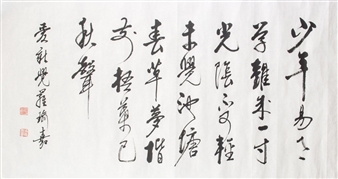 少年易老
學難成一寸
光陰不可輕
未覺池塘
春草夢階
前梧葉已
秋聲
愛新覺羅嘉